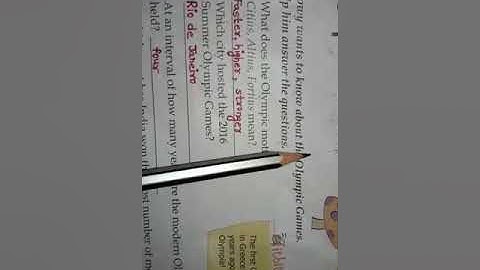 owy wants to know about the Olympic Games.
p him answer the questions.
What does the Olympic mot
Citius, Altius, Fortius mean?
Faster, higher, stronger
Which city hosted the 2016
Summer Olympic Games?
Rio de Janeiro
At an interval of how many ye re the modern Ol
held? four
India won th st number of m
The first
in Greece
years ago
Olympia!